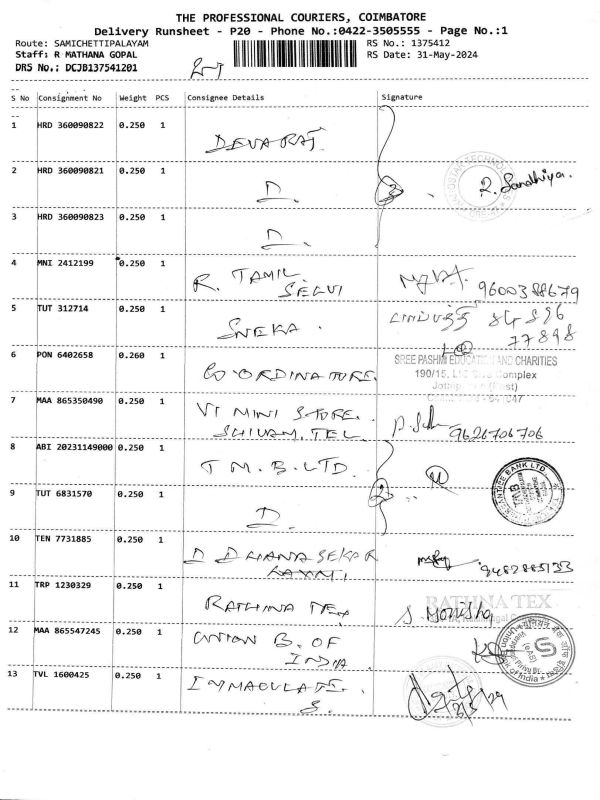 THE PROFESSIONAL COURIERS, COIMBATORE
Delivery Runsheet - P20 - Phone No.:0422-3505555 - Page No.:1
Route: SAMICHETTIPALAYAM RS No.: 1375412
Staff: R MATHANA GOPAL RS Date: 31-May-2024
DRS No.: DCJB137541201
S No Consignment No Weight PCS Consignee Details Signature
1 HRD 360090822 0.250 1 DEVARAJ
2 HRD 360090821 0.250 1 D. 3 R. Sandhiya.
3 HRD 360090823 0.250 1 D.
4 MNI 2412199 0.250 1 R. TAMIL SELVI 9600388679
5 TUT 312714 0.250 1 SNEKA. 84896 77898
6 PON 6402658 0.260 1 CO-ORDINATORE.
SREE PASHMI EDUCATION AND CHARITIES
190/15, Complex
7 MAA 865350490 0.250 1 VI MINI STORE. SHIVAM. TEL 9626706706
8 ABI 20231149000 0.250 1 T M. B. LTD.
9 TUT 6831570 0.250 1 D. 2
10 TEN 7731885 0.250 1 D DHANASEKAR
11 TRP 1230329 0.250 1 RATHNA TEX S Monisha
RATHNA TEX
12 MAA 865547245 0.250 1 UNION B. OF INDIA
Union Bank of India
13 TVL 1600425 0.250 1 IMMACULATE. S.